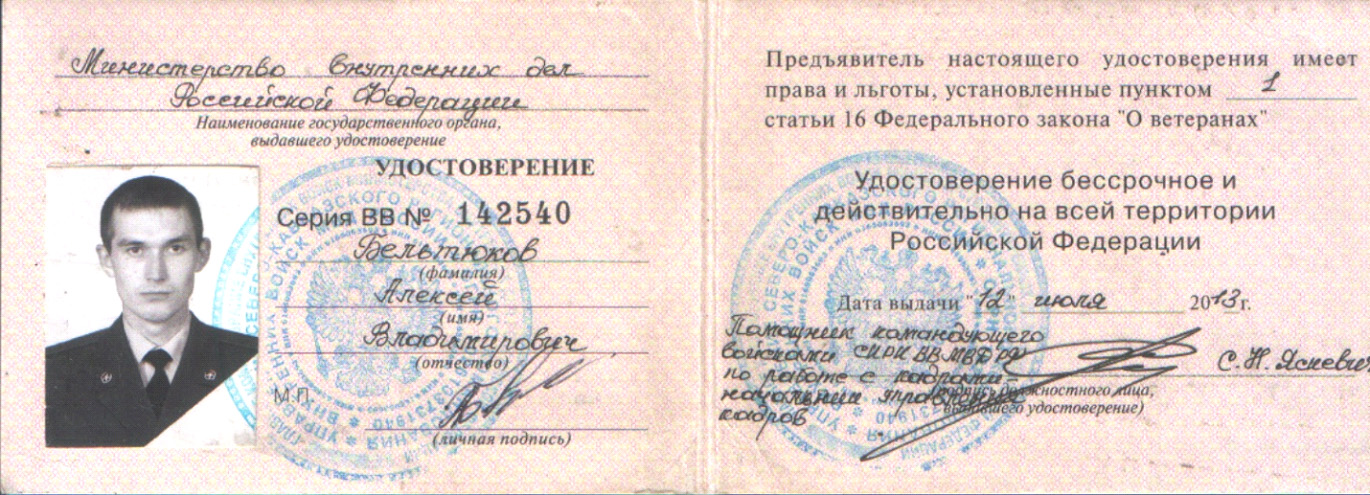 Министерство внутренних дел
Российской Федерации
Наименование государственного органа,
выдавшего удостоверение
УДОСТОВЕРЕНИЕ
Серия ВВ № 142540
Бельтюков
(фамилия)
Алексей
(имя)
Владимирович
(отчество)
М.П.
(личная подпись)
Предъявитель настоящего удостоверения имеет
права и льготы, установленные пунктом 1
статьи 16 Федерального закона "О ветеранах"
Удостоверение бессрочное и
действительно на всей территории
Российской Федерации
Дата выдачи "12" июля 2013г.
Помощник командующего
войсками СКРК ВВ МВФ РФ
по работе с кадрами
начальник управления
кадров
С.Н. Ясневич
(подпись должностного лица,
выдавшего удостоверение)